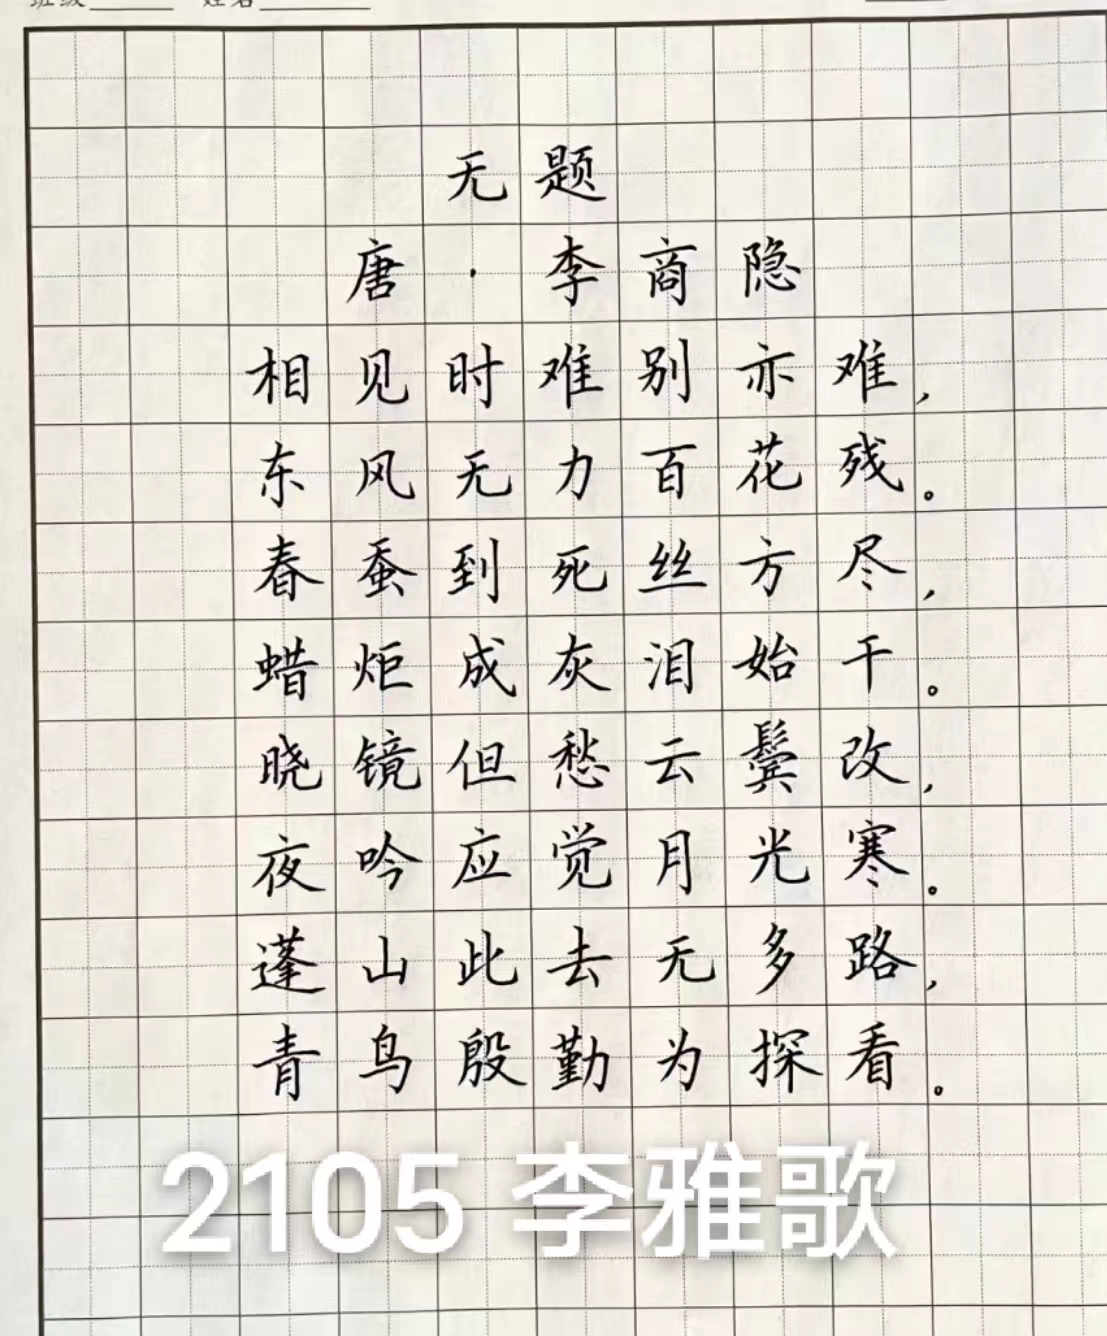 班级 姓名
无题
唐·李商隐
相见时难别亦难,
东风无力百花残。
春蚕到死丝方尽,
蜡炬成灰泪始干。
晓镜但愁云鬓改,
夜吟应觉月光寒。
蓬山此去无多路,
青鸟殷勤为探看。
2105 李雅歌